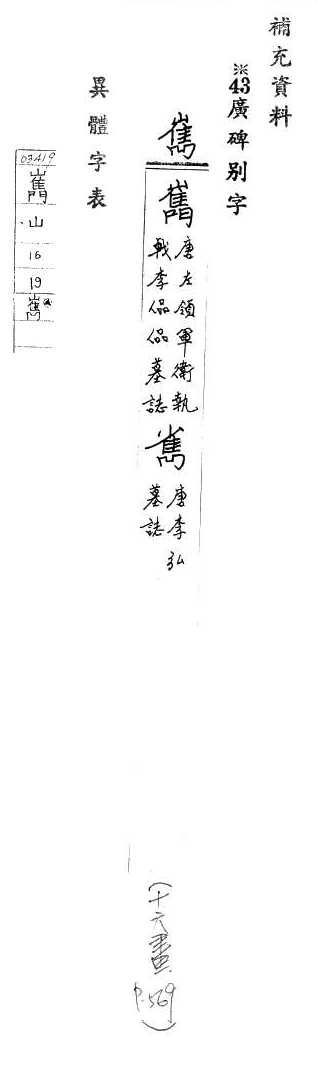 補充資料
※43廣碑別字
嶲
唐左領軍衛執
戟李偘偘墓誌
唐李弘
墓誌
(十六畫 P.569)
異體字表
03419
山
16
19